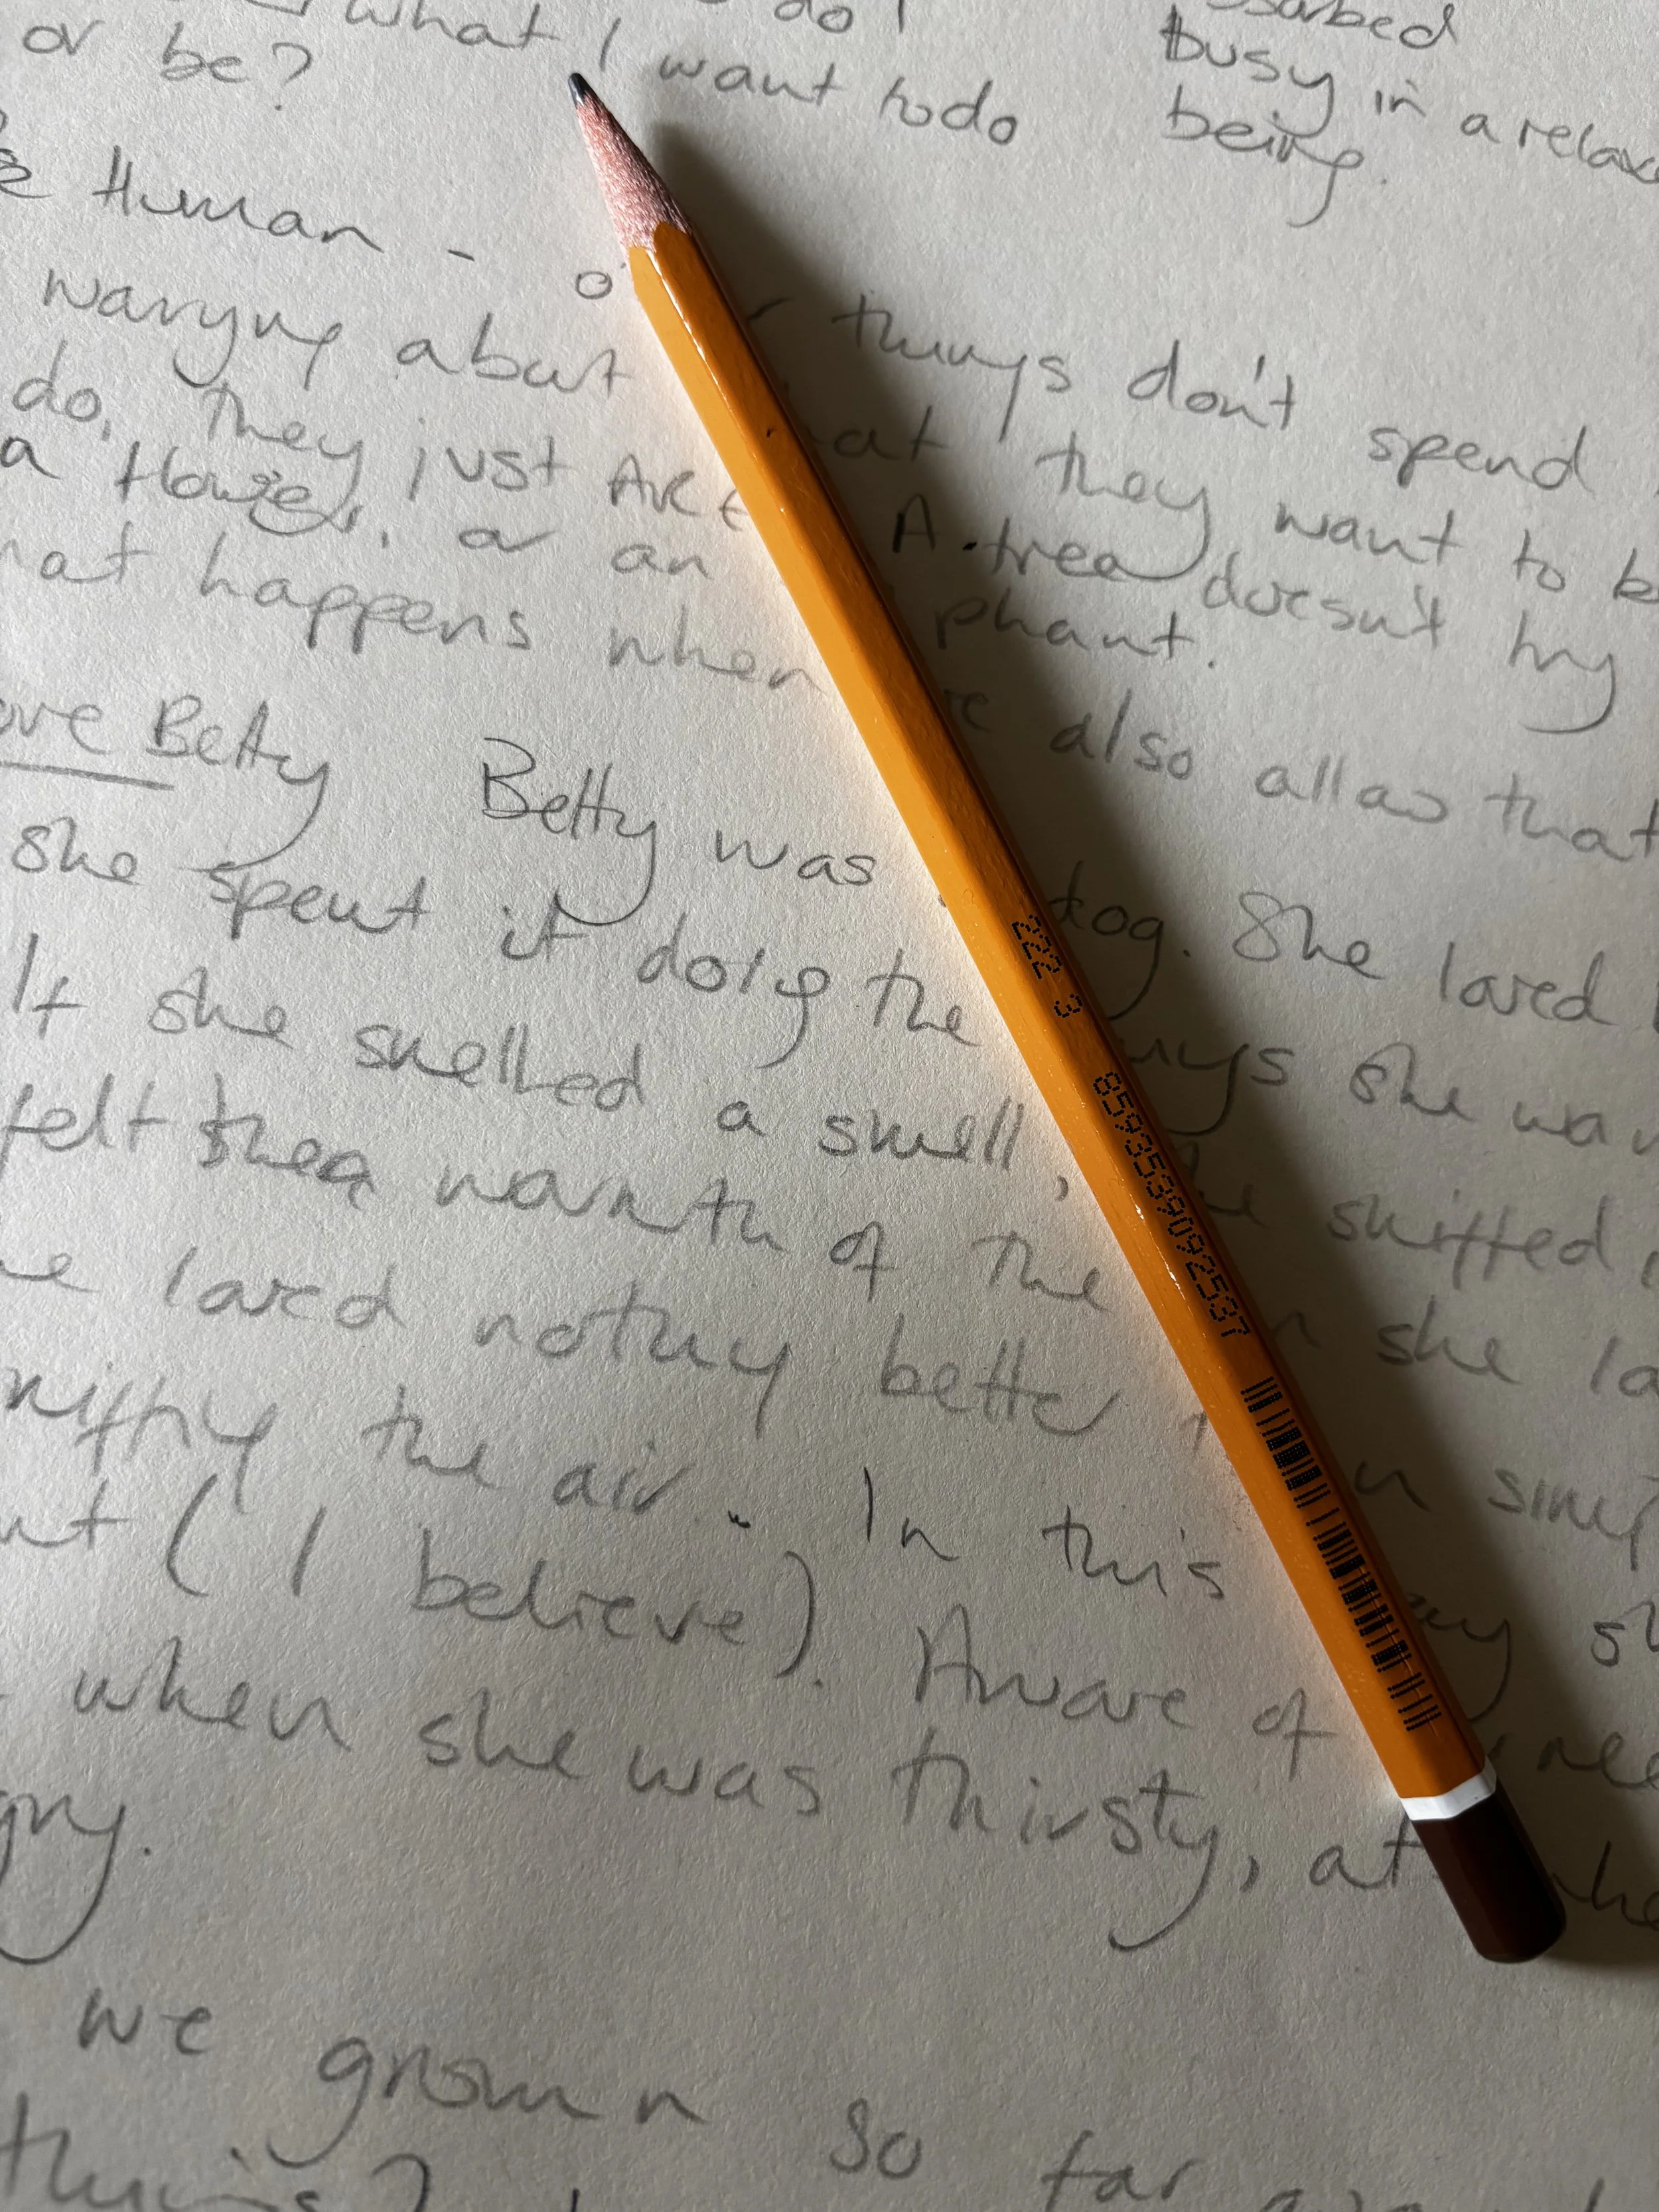 what I do I
or be? want to do
absorbed
busy in a relaxe
being.
Human - o r things don't spend
worrying about at they want to b
do, they just ARE A tree doesn't try
a flower, or an phant.
hat happens when e also allow that
ove Betty Betty was dog. She loved
she spent it doig the ings she wan
If she smelled a smell, he sniffed
felt the warmth of the n she la
he loved nothing better n simp
niffing the air. In this ay sh
nt (I believe). Aware of nee
when she was thirsty, at whe
gry.
we grown so far
this?
222 3 8593539092537